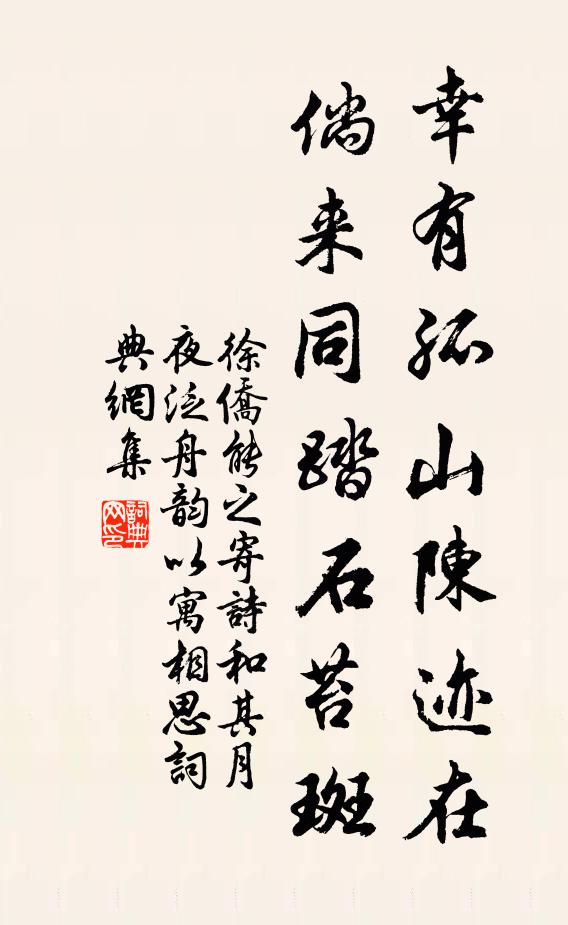 幸有孤山陳迹在
倘来同踏石苔斑
徐僑能之寄詩和其月
夜泛舟韵以寓相思詞
典網集
詞典
网印